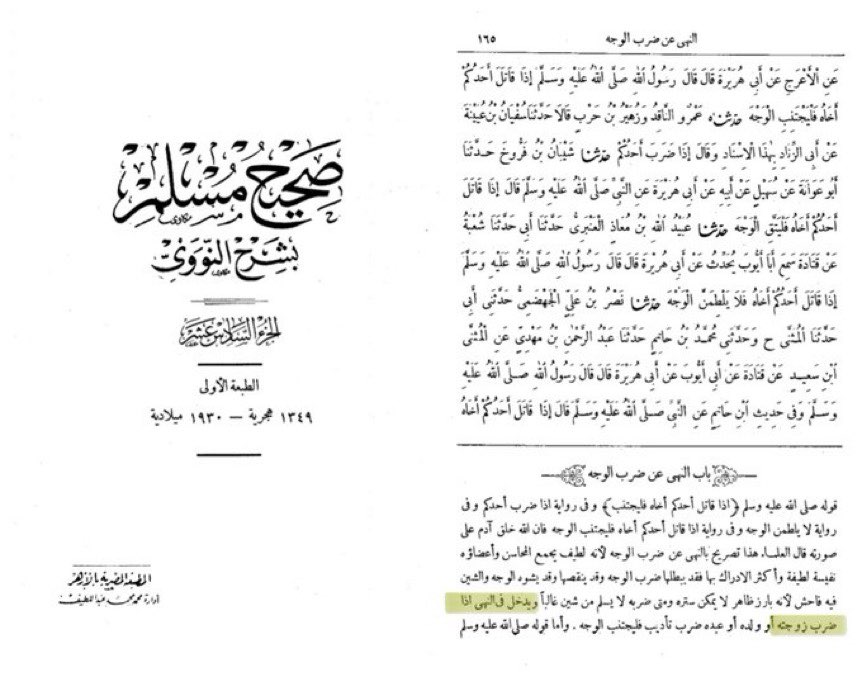 صَحِيحُ مُسْلِمْ
بشَرْحِ النَّوَوِي
الجزء السادس عشر
الطبعة الأولى
١٣٤٩ هجرية — ١٩٣٠ ميلادية
المطبعة المصرية بالأزهر
إدارة محمد محمد عبد اللطيف
النهى عن ضرب الوجه ١٦٥
عَنِ الْأَعْرَجِ عَنْ أَبِى هُرَيْرَةَ قَالَ قَالَ رَسُولُ اللهِ صَلَّى اللهُ عَلَيْهِ وَسَلَّمَ إِذَا قَاتَلَ أَحَدُكُمْ
أَخَاهُ فَلْيَجْتَنِبِ الْوَجْهَ حَدَّثَنَاهُ عَمْرٌو النَّاقِدُ وَزُهَيْرُ بْنُ حَرْبٍ قَالَا حَدَّثَنَا سُفْيَانُ بْنُ عُيَيْنَةَ
عَنْ أَبِى الزِّنَادِ بِهَذَا الْإِسْنَادِ وَقَالَ إِذَا ضَرَبَ أَحَدُكُمْ حَدَّثَنَا شَيْبَانُ بْنُ فَرُّوخَ حَدَّثَنَا
أَبُو عَوَانَةَ عَنْ سُهَيْلٍ عَنْ أَبِيهِ عَنْ أَبِى هُرَيْرَةَ عَنِ النَّبِىِّ صَلَّى اللهُ عَلَيْهِ وَسَلَّمَ قَالَ إِذَا قَاتَلَ
أَحَدُكُمْ أَخَاهُ فَلْيَتَّقِ الْوَجْهَ حَدَّثَنَا عُبَيْدُ اللهِ بْنُ مُعَاذٍ الْعَنْبَرِىُّ حَدَّثَنَا أَبِى حَدَّثَنَا شُعْبَةُ
عَنْ قَتَادَةَ سَمِعَ أَبَا أَيُّوبَ يُحَدِّثُ عَنْ أَبِى هُرَيْرَةَ قَالَ قَالَ رَسُولُ اللهِ صَلَّى اللهُ عَلَيْهِ وَسَلَّمَ
إِذَا قَاتَلَ أَحَدُكُمْ أَخَاهُ فَلَا يَلْطِمَنَّ الْوَجْهَ حَدَّثَنَا نَصْرُ بْنُ عَلِىٍّ الْجَهْضَمِىُّ حَدَّثَنِى أَبِى
حَدَّثَنَا الْمُثَنَّى ح وَحَدَّثَنِى مُحَمَّدُ بْنُ حَاتِمٍ حَدَّثَنَا عَبْدُ الرَّحْمَنِ بْنُ مَهْدِىٍّ عَنِ الْمُثَنَّى
ابْنِ سَعِيدٍ عَنْ قَتَادَةَ عَنْ أَبِى أَيُّوبَ عَنْ أَبِى هُرَيْرَةَ قَالَ قَالَ رَسُولُ اللهِ صَلَّى اللهُ عَلَيْهِ
وَسَلَّمَ وَفِى حَدِيثِ ابْنِ حَاتِمٍ عَنِ النَّبِىِّ صَلَّى اللهُ عَلَيْهِ وَسَلَّمَ قَالَ إِذَا قَاتَلَ أَحَدُكُمْ أَخَاهُ
باب النهى عن ضرب الوجه
قوله صلى الله عليه وسلم ﴿اذا قاتل أحدكم أخاه فليجتنب﴾ وفى رواية اذا ضرب أحدكم وفى
رواية لا يلطمن الوجه وفى رواية اذا قاتل أحدكم أخاه فليجتنب الوجه فان الله خلق آدم على
صورته قال العلماء هذا تصريح بالنهى عن ضرب الوجه لأنه لطيف يجمع المحاسن وأعضاؤه
نفيسة لطيفة وأكثر الادراك بها فقد يبطلها ضرب الوجه وقد ينقصها وقد يشوه الوجه والشين
فيه فاحش لأنه بارز ظاهر لا يمكن ستره ومتى ضربه لا يسلم من شين غالباً ويدخل فى النهى اذا
ضرب زوجته أو ولده أو عبده ضرب تأديب فليجتنب الوجه . وأما قوله صلى الله عليه وسلم